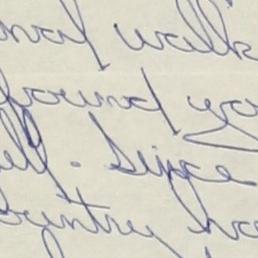 onal walk
found yo
ell. Since
ountry ha